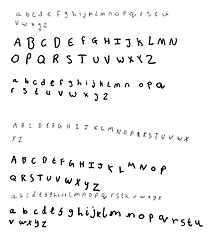 a b c d e f g h i j k l m n o p q r s t u
v w x y z
A B C D E F G H I J K L M N
O P Q R S T U V W X Y Z
a b c d e f g h i j k l m n o p q
r s t u v w x y z
A B C D E F G H I J K L M N O P Q R S T U V W X
Y Z
A B C D E F G H I J K L M N O P
Q R S T U V W X Y Z
a b c d e f g h i j k l m n o p q r s t u v w x y z
a b c d e f g h i j k l m n o p q r s t u
v w x y z